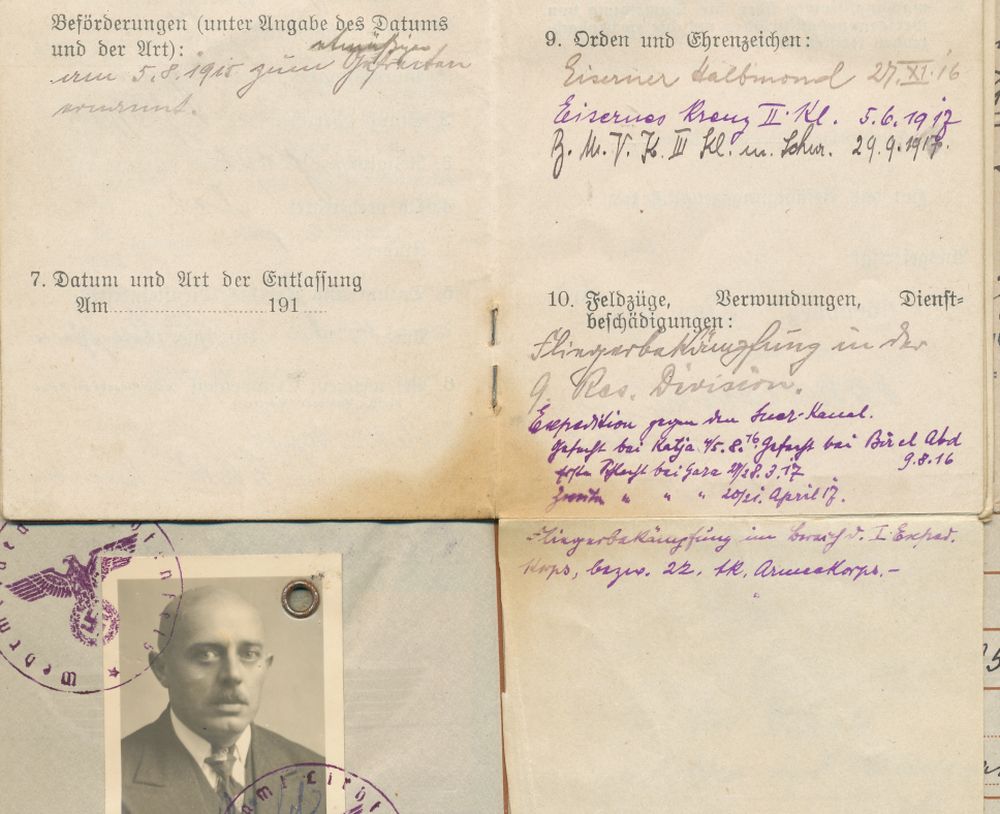 Beförderungen (unter Angabe des Datums
und der Art):
etmäßigen
am 5.8.1915 zum Gefreiten
ernannt.
7. Datum und Art der Entlassung
Am 191
9. Orden und Ehrenzeichen:
Eiserner Halbmond 27.XI.16
Eisernes Kreuz II. Kl. 5.6.1917
B. M. V. K. III Kl. m. Schw. 29.9.1917.
10. Feldzüge, Verwundungen, Dienst-
beschädigungen:
Fliegerbekämpfung in der
9. Res. Division.
Expedition gegen den Suez-Kanal.
Gefecht bei Katja 4/5.8.16 Gefecht bei Bir el Abd
9.8.16
erste Schlacht bei Gaza 27/28.3.17
Zweite " " " 20/21. April 17.
Fliegerbekämpfung im Bereich d. I. Exped.
Korps, bezw. 22. tk. Armeekorps.-